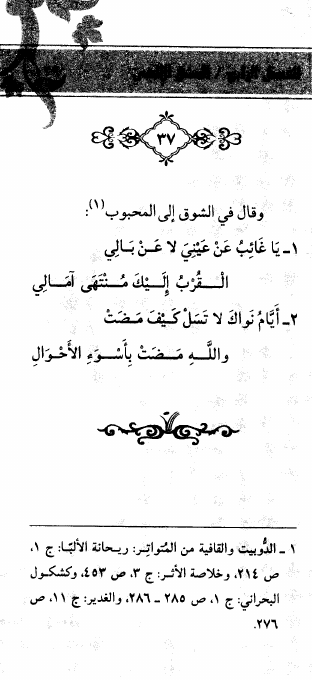 ٣٧
وقال في الشوق إلى المحبوب(١):
١ـ يَا غَائِبُ عَنْ عَيْنِيَ لا عَنْ بَـالِي
الْـقُـرْبُ إِلَـيْـكَ مُـنْـتَـهَى آمَـالِي
٢ـ أَيَّامُ نَواكَ لا تَسَلْ كَـيْـفَ مَـضَـتْ
واللَّـهِ مَـضَـتْ بِأَسْـوَءِ الأَحْـوَالِ
١ ـ الدُّوبيت والقافية من المُتواتِـر: ريحانة الألبّـا: ج ١،
ص ٢١٤، وخلاصة الأثـر: ج ٣، ص ٤٥٣، وكشكـول
البحراني: ج ١، ص ٢٨٥ ـ ٢٨٦، والغدير: ج ١١، ص
٢٧٦.